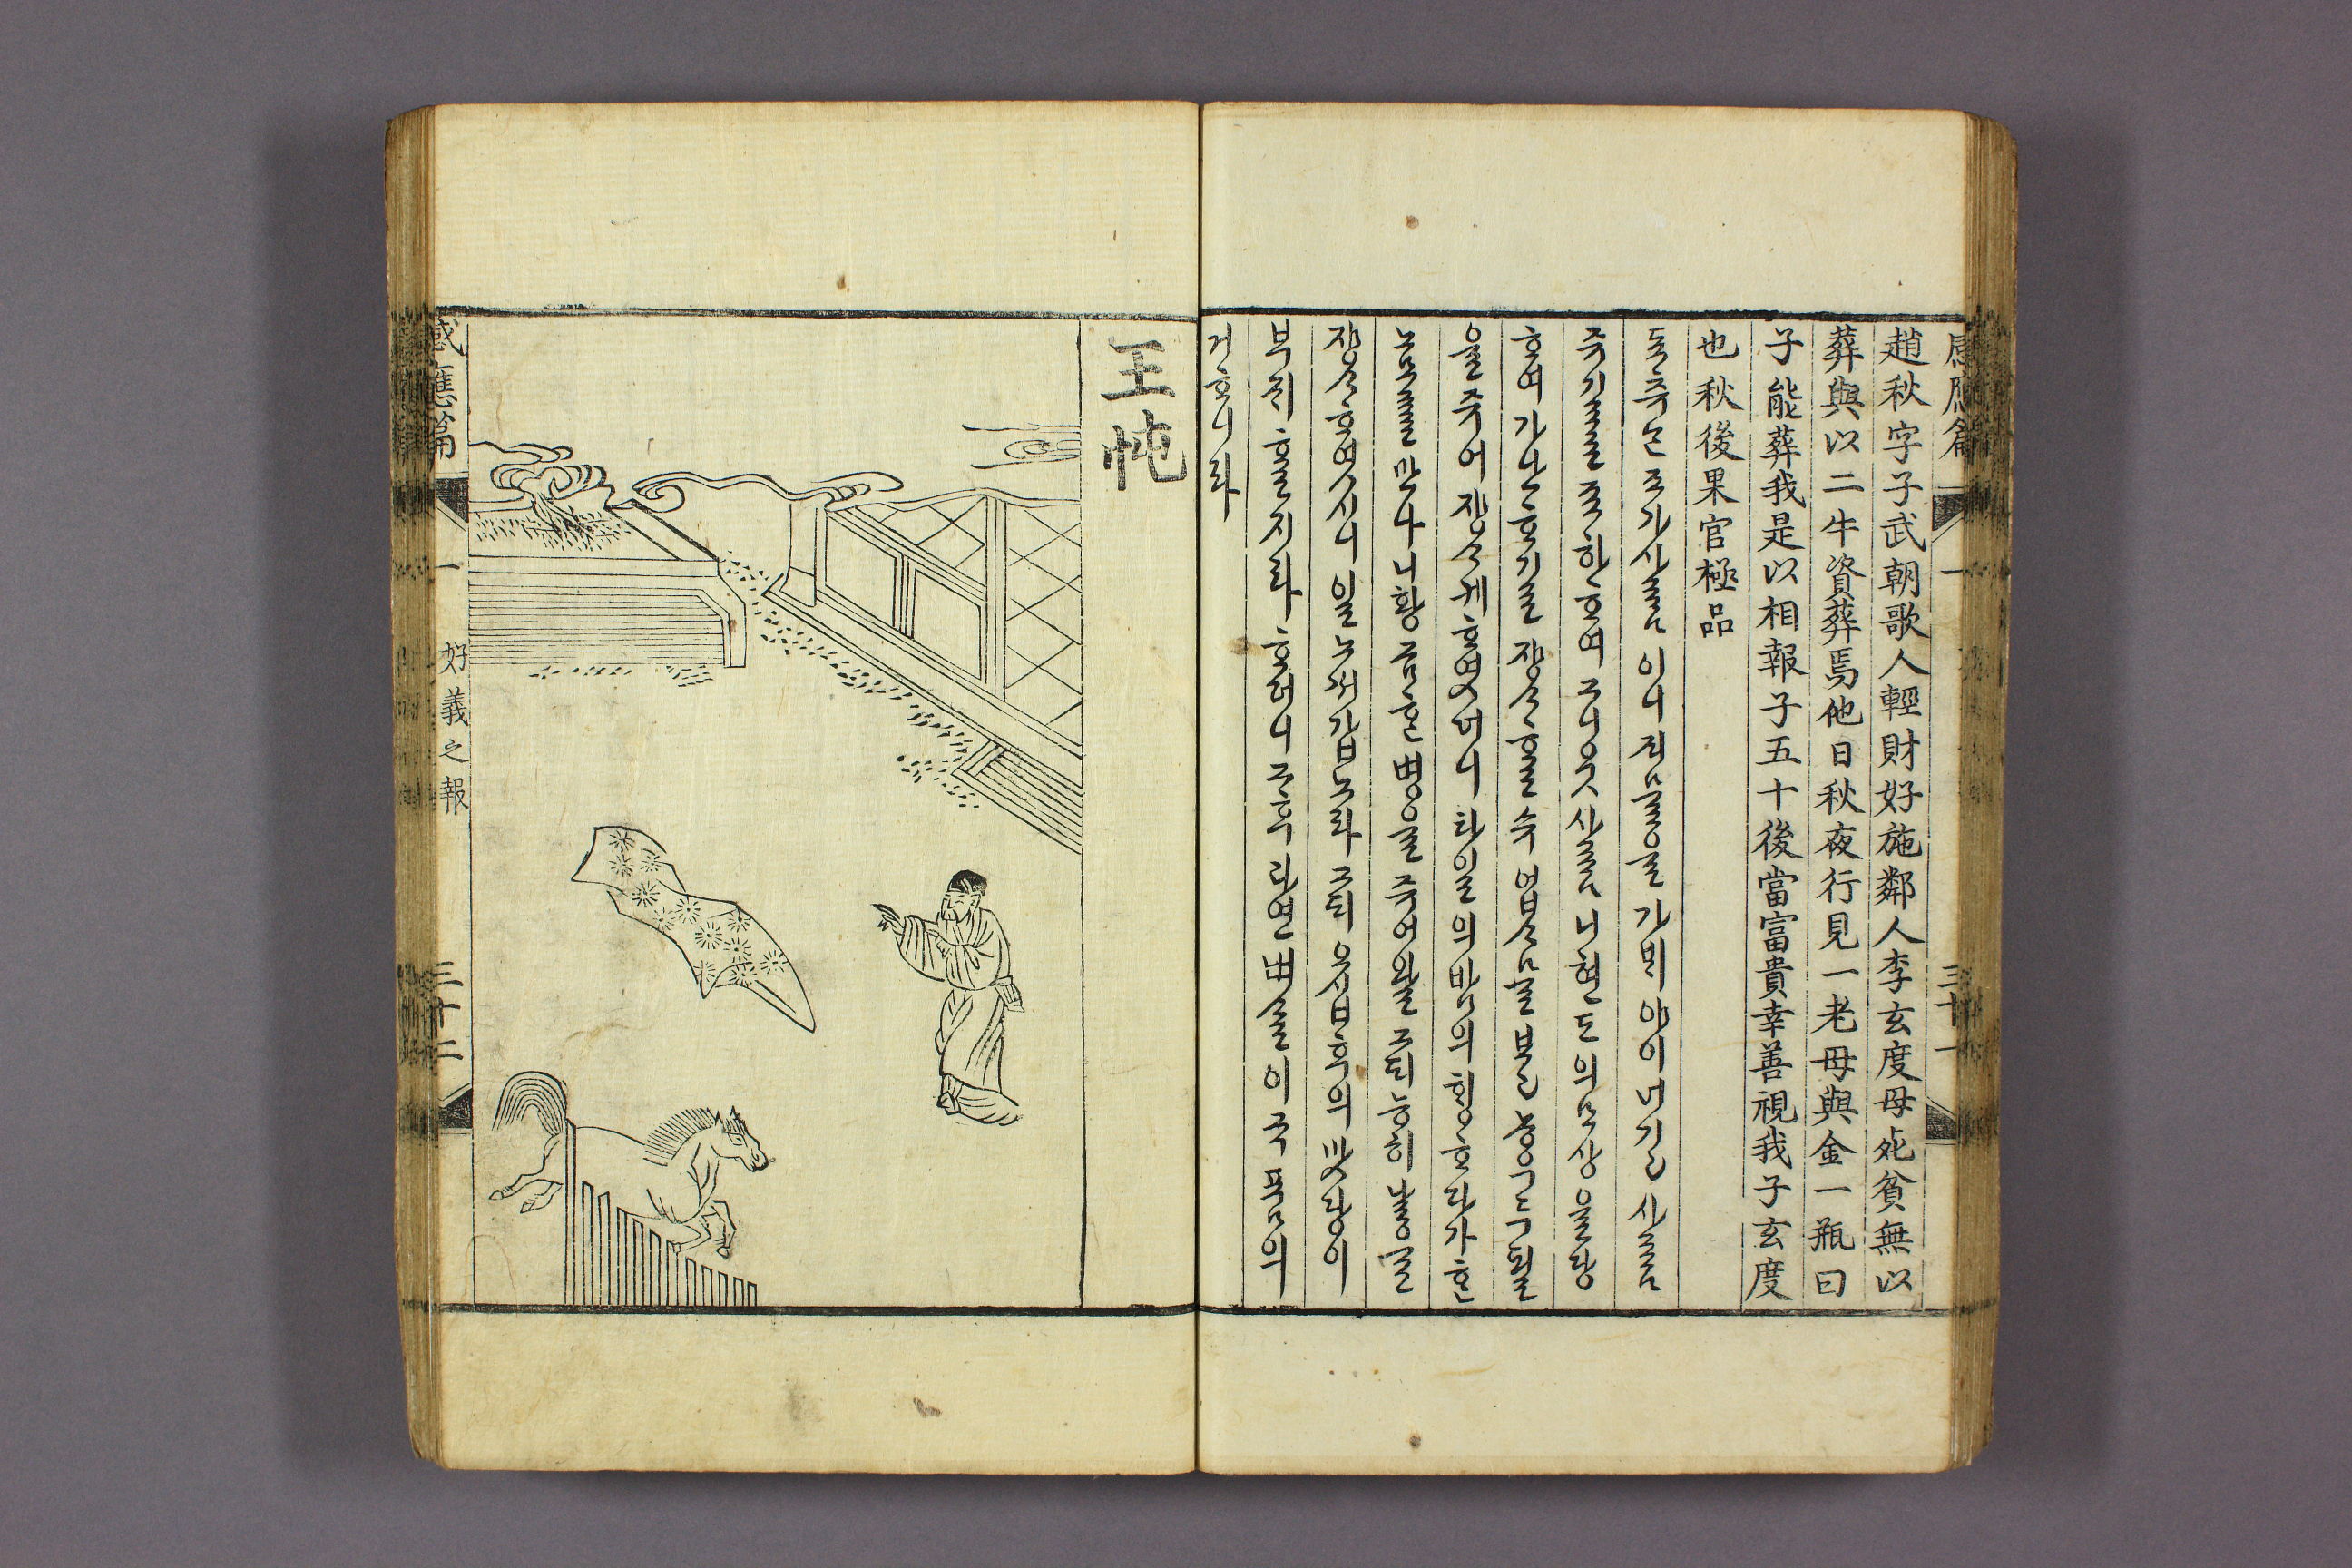 感應篇 一 三十一
趙秋字子武朝歌人輕財好施鄰人李玄度母死貧無以
葬與以二牛資葬焉他日秋夜行見一老母與金一瓶曰
子能葬我是以相報子五十後當富貴幸善視我子玄度
也秋後果官極品
됴츄ᄂᆞᆫ 됴가 사ᄅᆞᆷ이니 ᄌᆡ믈을 가ᄇᆡ야이 너기고 사ᄅᆞᆷ
주기ᄅᆞᆯ 죠하ᄒᆞ여 그 니웃 사ᄅᆞᆷ 니현도의 모상을 당
ᄒᆞ여 가난ᄒᆞ기로 장ᄉᆞᄒᆞᆯ 수 업ᄉᆞᆷ을 보고 농우 두 필
을 주어 장ᄉᆞ케 ᄒᆞ엿더니 타일의 밤의 ᄒᆡᆼᄒᆞ다가 ᄒᆞᆫ
노모ᄅᆞᆯ 만나니 황금 ᄒᆞᆫ 병을 주어 왈 그ᄃᆡ 능히 날을
장ᄉᆞᄒᆞ엿시니 일노ᄡᅥ 갑노라 그ᄃᆡ 오십 후의 맛당이
부귀ᄒᆞᆯ지라 ᄒᆞ더니 그 후 과연 벼슬이 극품의
거ᄒᆞ니라
王忳
感應篇 一 好義之報 三十二